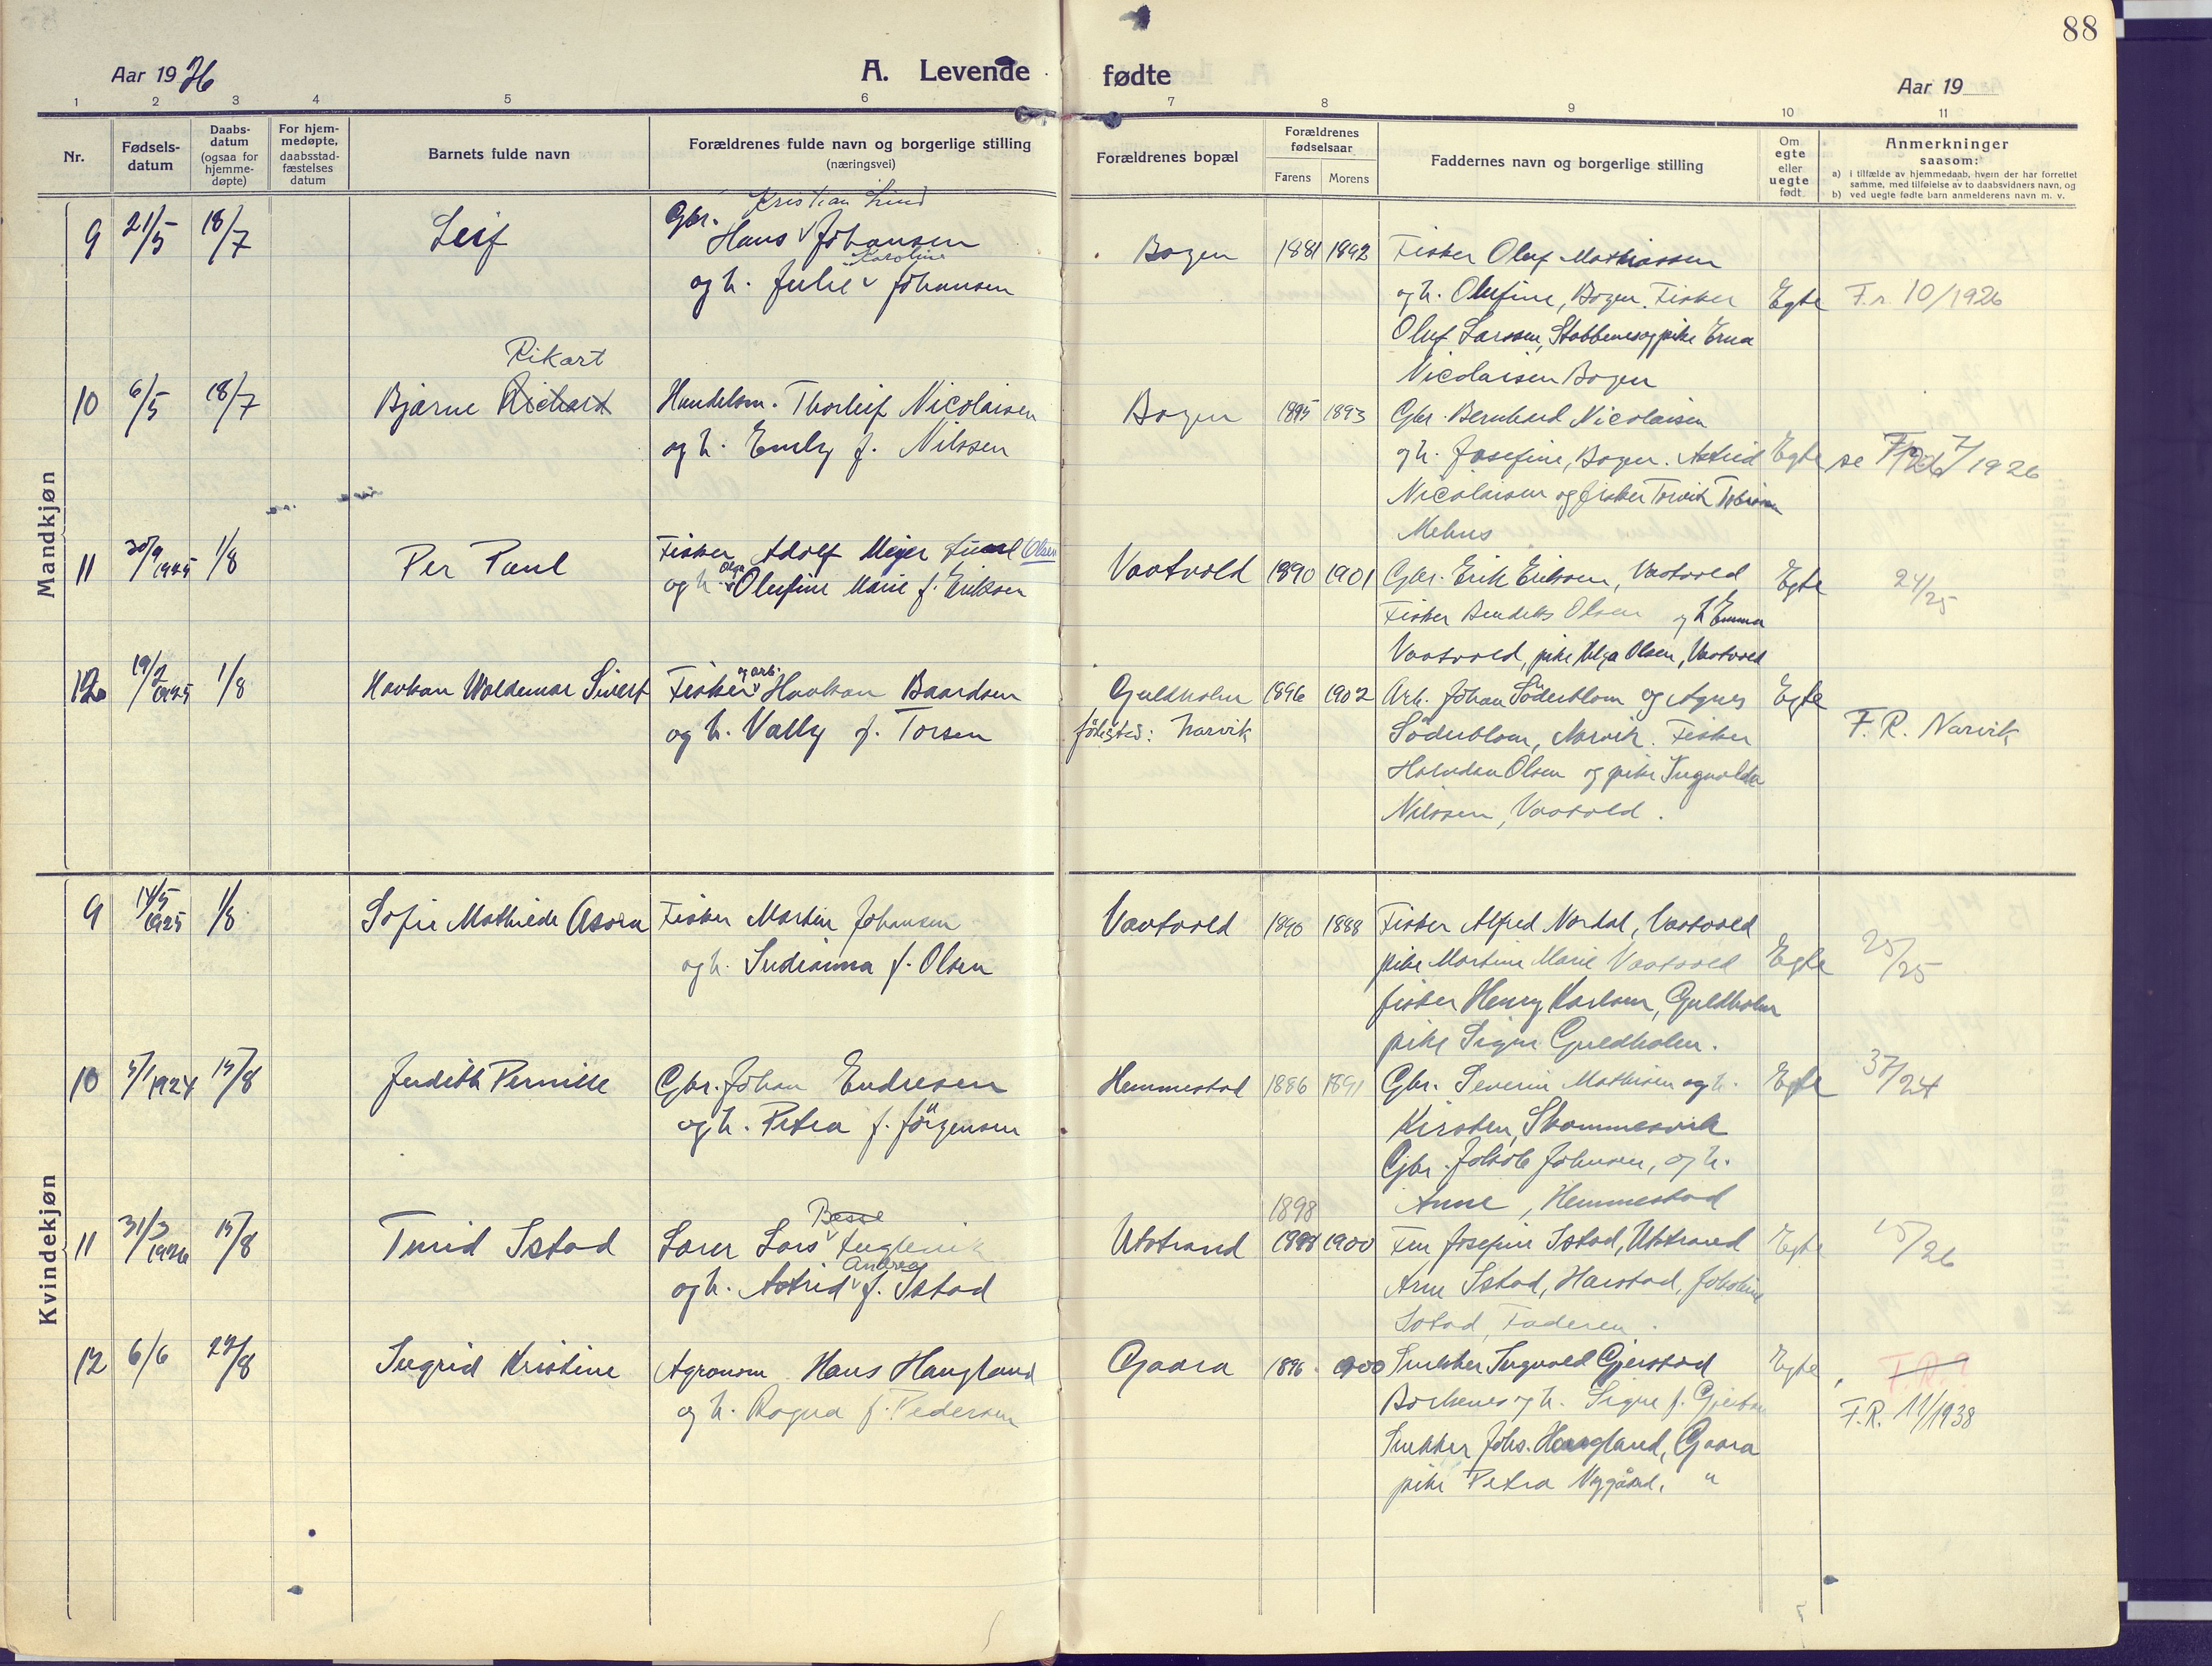 88
Aar 1926
A. Levende fødte
Aar 19
1 2 3 4 5 6 7 8 9 10 11
Nr.
Fødsels-
datum
Daabs-
datum
(ogsaa for
hjemme-
døpte)
For hjem-
medøpte,
daabsstad-
fæstelses
datum
Barnets fulde navn
Forældrenes fulde navn og borgerlige stilling
(næringsvei)
Forældrenes bopæl
Forældrenes
fødselsaar
Farens Morens
Faddernes navn og borgerlige stilling
Om
egte
eller
uegte
født.
Anmerkninger
saasom:
a) i tilfælde av hjemmedaab, hvem der har forrettet
samme, med tilføielse av to daabsvidners navn, og
b) ved uegte fødte barn anmelderens navn m. v.
Mandkjøn
9 21/5 18/7 Leif
Kristian Lind
Gbr. Hans Johansen
Karoline
og h. Julie Johansen
Bogen 1881 1892
Fisker Oluf Mathiassen
og h. Olufine, Bogen. Fisker
Oluf Larssen, Stobbenes og pike Erna
Nicolaisen Bogen
Egte F.r. 10/1926
Rikart
10 6/5 18/7 Bjarne Richard
Handelsm. Thorleif Nicolaisen
og h. Emly f. Nilssen
Bogen 1895 1893
Gbr. Bernhard Nicolaisen
og h. Josefine, Bogen. Astrid
Nicolaisen og fisker Torvik
Mehus
Egte se 7/1926
11 30/9 1925 1/8 Per Paul
Fisker Adolf Meyer Olsen
Olga
og h. Olufine Marie f. Eriksen
Vaatvold 1890 1901
Gbr. Erik Eriksen, Vaatvold
Fisker Bendiks Olsen og h Emma
Vaatvold, pike Helga Olsen, Vaatvold
Egte 24/25
12 19/2 1925 1/8 Haakon Waldemar Sivert
og arb.
Fisker Haakon Baardsen
og h. Vally f. Torsen
Guldholm
fødested: Narvik
1896 1902
Arb. Johan Söderblom og Agnes
Söderblom, Narvik. Fisker
Halvdan Olsen og pike Ingvalda
Nilssen, Vaatvold.
Egte
F. R. Narvik
Kvindekjøn
9 14/5 1925 1/8 Sofie Mathilde Asora
Fisker Martin Johansen
og h. Indianna f. Olsen
Vaatvold 1890 1888
Fisker Alfred Nordal, Vaatvold
pike Martine Marie Vaatvold
fisker Henry Karlsen, Guldholm
pike Signe Guldholm.
Egte 25/25
10 5/1 1924 15/8 Judith Pernille
Gbr. Johan Endresen
og h. Petra f. Jörgensen
Hemmestad 1886 1891
Gbr. Severin Mathisen og h.
Kirsten, Skommesvik
Gbr. Jakob Johnsen, og h.
Anne, Hemmestad
Egte 37/24
11 31/3 1926 15/8 Turid Istad
Besse
Lærer Lars Fuglevik
Andrea
og h. Astrid f. Istad
Utstrand
1898
1888 1900
Fru Josefine Istad, Utstrand
Arne Istad, Harstad, Jakobine
Istad, Faderen.
Egte 15/26
12 6/6 22/8 Ingrid Kristine
Agronom Hans Haugland
og h. Ragna f. Pedersen
Gaara 1896 1900
Snekker Ingvald Gjerstad
Borkenes og h. Signe f. Gjerstad
Snekker Johs. Haugland, Gaara
pike Petra Nygård, "
Egte F.R.?
F.R. 11/1938